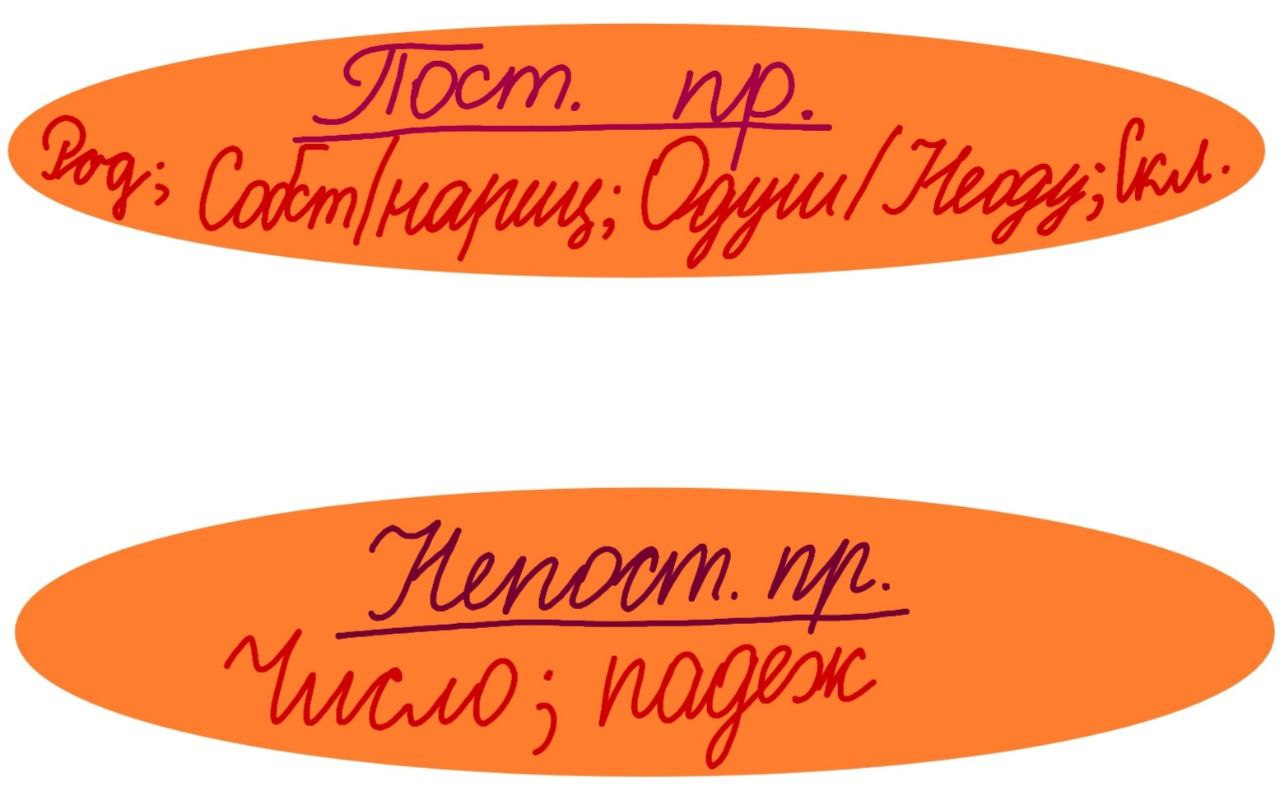 Пост. пр.
Род; Собст/нариц; Одуш/Неоду; Скл.
Непост. пр.
Число; падеж